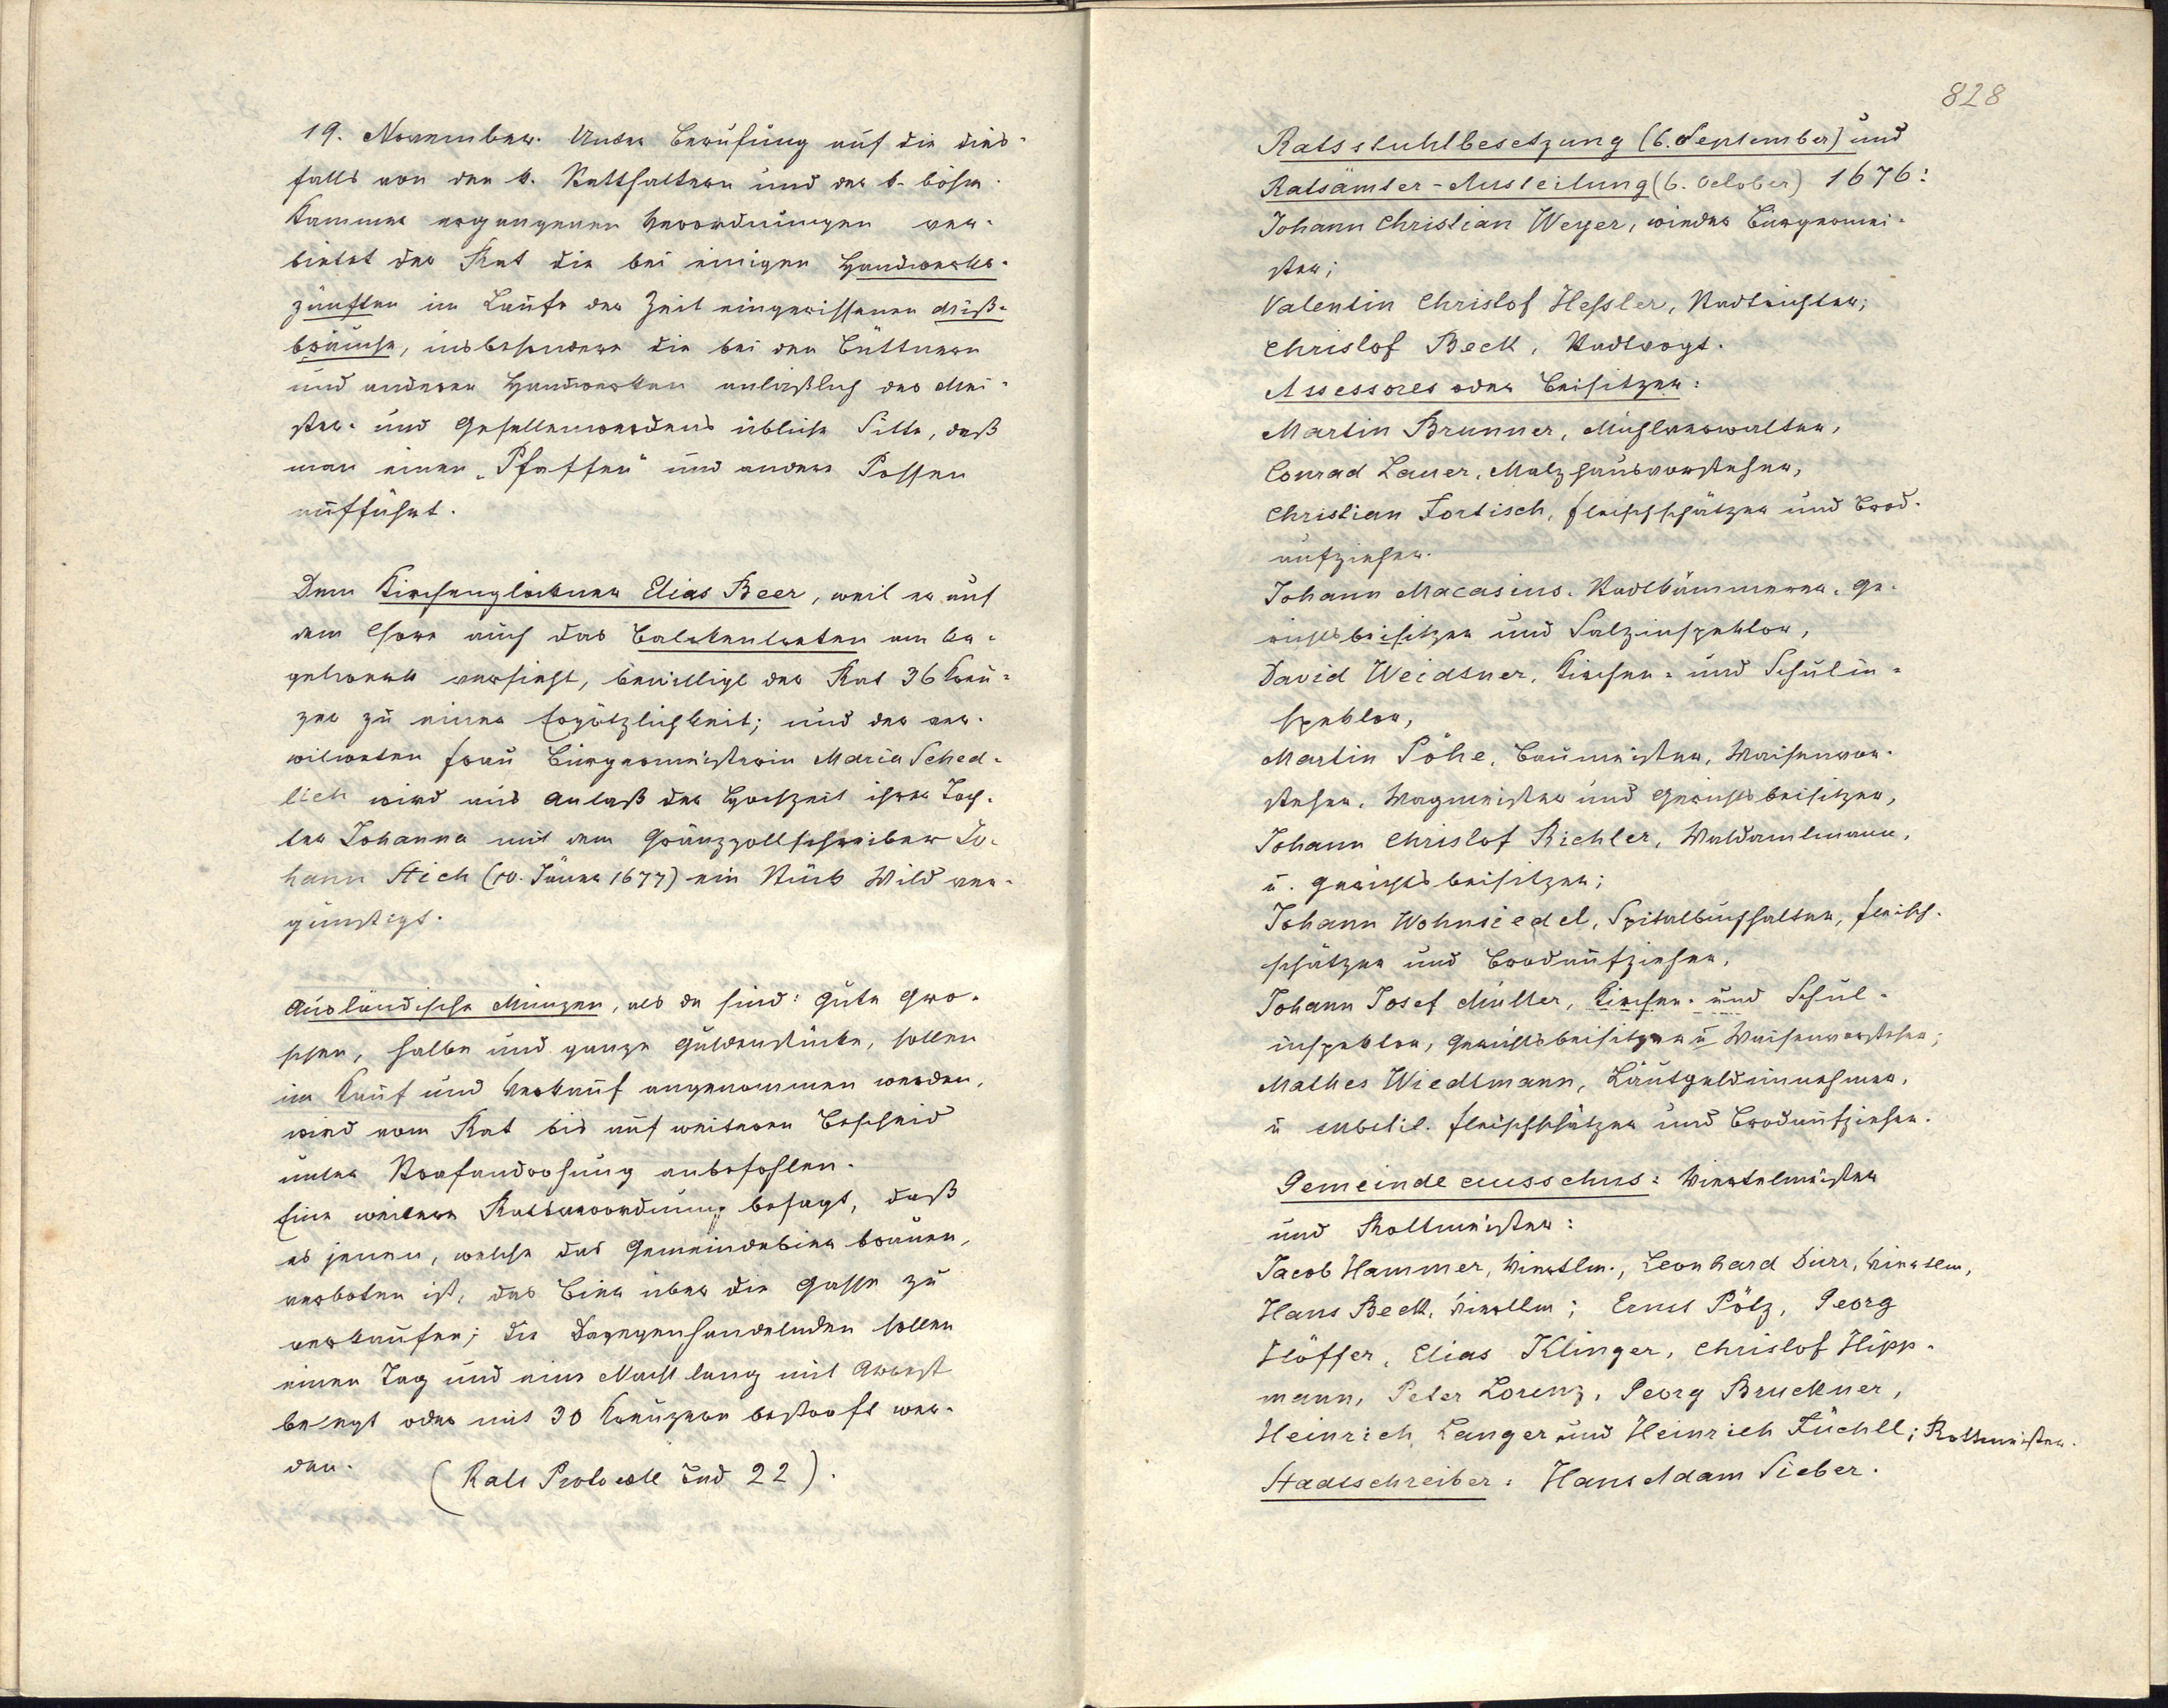 19. November. Unter Berufung auf die dies-
falls von den k. Statthaltern und der k. böhm.
Kammer ergangenen Verordnungen ver-
bietet der Rat die bei einigen Handwerks-
zünften im Laufe der Zeit eingerissenen Miß-
bräuche, insbesondere die bei den Büttnern
und anderen Handwerken anläßlich des Mei-
ster- und Gesellenwerdens übliche Sitte, daß
man einen „Pfaffen“ und andere Possen
aufführt.
Dem Kirchenglöckner Elias Beer, weil er auf
dem Chore auch das Balckentreten am Or-
gelwerk versieht, bewilligt der Rat 36 Kreu-
zer zu einer Ergötzlichkeit; und der ver-
witweten Frau Bürgermeisterin Maria Sched-
lich wird aus Anlaß der Hochzeit ihrer Toch-
ter Johanna mit dem Gränzzollschreiber Jo-
hann Stich (10. Jäner 1677) ein Stück Wild ver-
günstigt.
Ausländische Münzen, als da sind: gute Gro-
schen, halbe und ganze Guldenstücke, sollen
im Kauf und Verkauf angenommen werden,
wird vom Rat bis auf weiteren Bescheid
unter Strafandrohung anbefohlen.
Eine weitere Ratsverordnung besagt, daß
es jenen, welche das Gemeindebier brauen,
verboten ist, das Bier über die Gasse zu
verkaufen; die Dagegenhandelnden sollen
einen Tag und eine Nacht lang mit Arrest
belegt oder mit 30 Kreuzern bestraft wer-
den. (Rats Protocoll 22).
828
Ratsstuhlbesetzung (6. September) und
Ratsämter-Austeilung (6. October) 1676:
Johann Christian Weyer, wieder Bürgermei-
ster;
Valentin Christof Heßler, Stadtrichter;
Christof Beck, Stadtvogt.
Assessores oder Beisitzer:
Martin Brunner, Mühlverwalter,
Conrad Lauer, Malzhausvorsteher,
Christian Fortisch, Fleischschätzer und Brod-
aufzieher.
Johann Macasius, Stadtkämmerer, Ge-
richtsbeisitzer und Salzinspektor,
David Weidtner, Kirchen- und Schulin-
spektor,
Martin Pöhe, Baumeister, Waisenvor-
steher, Wagmeister und Gerichtsbeisitzer,
Johann Christof Richter, Waldamtmann,
u. Gerichtsbeisitzer;
Johann Wohnsiedel, Spitalbuchhalter, Fleisch-
schätzer und Brodaufzieher,
Johann Josef Müller, Kirchen- und Schul-
inspektor, Gerichtsbeisitzer u Waisenvorsteher;
Mathes Wiedtmann, Läutgeldeinnehmer,
u substit. Fleischschätzer und Brodaufzieher.
Gemeindeausschus: Viertelmeister
und Rottmeister:
Jacob Hammer, Viertlm., Leonhard Dürr, Viertlm,
Hans Beck, Viertlm; Ernst Pötz, Georg
Höffer, Elias Klinger, Christof Hipp-
mann, Peter Lorenz, Georg Bruckner,
Heinrich Langer und Heinrich Füchtl; Rottmeister.
Stadtschreiber: Hans Adam Sieber.